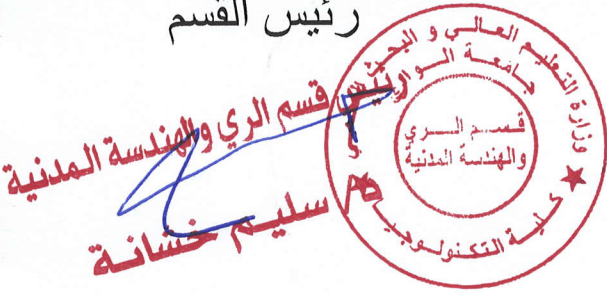 رئيس القسم
رئيس قسم الري والهندسة المدنية
د/ سليم خشانة
وزارة التعليم العالي و البحث
جامعة الوادي
قسم الري
والهندسة المدنية
كلية التكنولوجيا